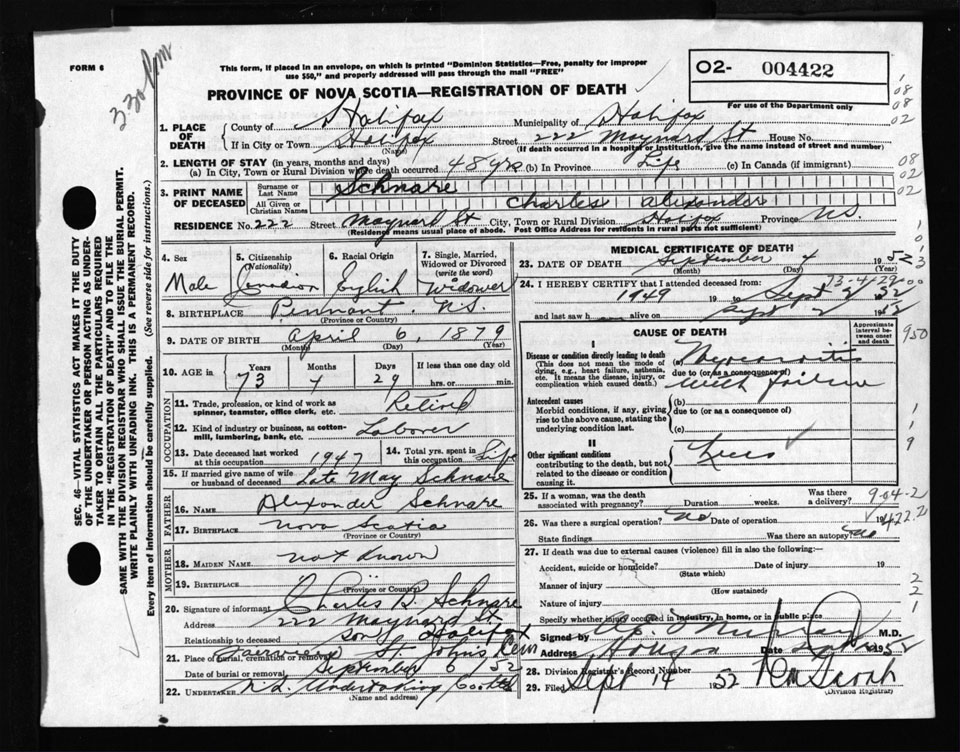 FORM 6
3.30 pm
This form, if placed in an envelope, on which is printed "Dominion Statistics—Free, penalty for improper
use $50," and properly addressed will pass through the mail "FREE"
O2- 004422
PROVINCE OF NOVA SCOTIA—REGISTRATION OF DEATH
For use of the Department only
08
08
02
1. PLACE OF DEATH { County of Halifax Municipality of Halifax
If in City or Town Halifax Street 222 Maynard St House No.
(Name) (If death occurred in a hospital or institution, give the name instead of street and number)
2. LENGTH OF STAY (in years, months and days)
(a) In City, Town or Rural Division where death occurred 48 yrs (b) In Province Life (c) In Canada (if immigrant)
08
02
02
3. PRINT NAME OF DECEASED { Surname or Last Name Schnare
All Given or Christian Names Charles Alexander
RESIDENCE No. 222 Street Maynard St City, Town or Rural Division Halifax Province N.S.
(Residence means usual place of abode. Post Office Address for residents in rural parts not sufficient)
4. Sex Male
5. Citizenship (Nationality) Canadian
6. Racial Origin English
7. Single, Married, Widowed or Divorced (write the word) Widower
8. BIRTHPLACE Pennant N.S.
(Province or Country)
9. DATE OF BIRTH April 6, 1879
(Month) (Day) (Year)
10. AGE in Years 73 Months 4 Days 29 If less than one day old hrs. or min.
OCCUPATION
11. Trade, profession, or kind of work as
spinner, teamster, office clerk, etc. Retired
12. Kind of industry or business, as cotton-
mill, lumbering, bank, etc. Laborer
13. Date deceased last worked at this occupation 1947 14. Total yrs. spent in this occupation Life
15. If married give name of wife
or husband of deceased Late May Schnare
FATHER
16. NAME Alexander Schnare
17. BIRTHPLACE Nova Scotia
(Province or Country)
MOTHER
18. MAIDEN NAME not known
19. BIRTHPLACE
(Province or Country)
20. Signature of informant Charles B. Schnare
Address 222 Maynard St.
Relationship to deceased son Halifax
21. Place of burial, cremation or removal Fairview St. John's Cem
Date of burial or removal September 6 / 52
22. UNDERTAKER N.S. Undertaking
(Name and address)
MEDICAL CERTIFICATE OF DEATH
23. DATE OF DEATH September 4 1952
(Month) (Day) (Year)
24. I HEREBY CERTIFY that I attended deceased from:
1949 19 to Sept 2 1952
and last saw h alive on Sept 2 1952
CAUSE OF DEATH
Approximate interval between onset and death
I
Disease or condition directly leading to death
(This does not mean the mode of
dying, e.g., heart failure, asthenia,
etc. It means the disease, injury, or
complication which caused death.)
(a) Myocarditis
due to (or as a consequence of)
with failure
Antecedent causes
Morbid conditions, if any, giving
rise to the above cause, stating the
underlying condition last.
(b)
due to (or as a consequence of)
(c)
II
Other significant conditions
contributing to the death, but not
related to the disease or condition
causing it.
25. If a woman, was the death
associated with pregnancy? Duration weeks. Was there a delivery?
26. Was there a surgical operation? No Date of operation 19
State findings Was there an autopsy? no
27. If death was due to external causes (violence) fill in also the following:—
Accident, suicide or homicide? Date of injury 19
(State which)
Manner of injury
(How sustained)
Nature of injury
Specify whether injury occurred in industry, in home, or in public place
Signed by M.D.
Address Date 1952
28. Division Registrar's Record Number
29. Filed Sept 14 1952
(Division Registrar)
SEC. 46—VITAL STATISTICS ACT MAKES IT THE DUTY
OF THE UNDERTAKER OR PERSON ACTING AS UNDER-
TAKER TO OBTAIN ALL THE PARTICULARS REQUIRED
IN THE "REGISTRATION OF DEATH" AND TO FILE THE
SAME WITH THE DIVISION REGISTRAR WHO SHALL ISSUE THE BURIAL PERMIT.
WRITE PLAINLY WITH UNFADING INK. THIS IS A PERMANENT RECORD.
Every item of information should be carefully supplied. (See reverse side for instructions.)